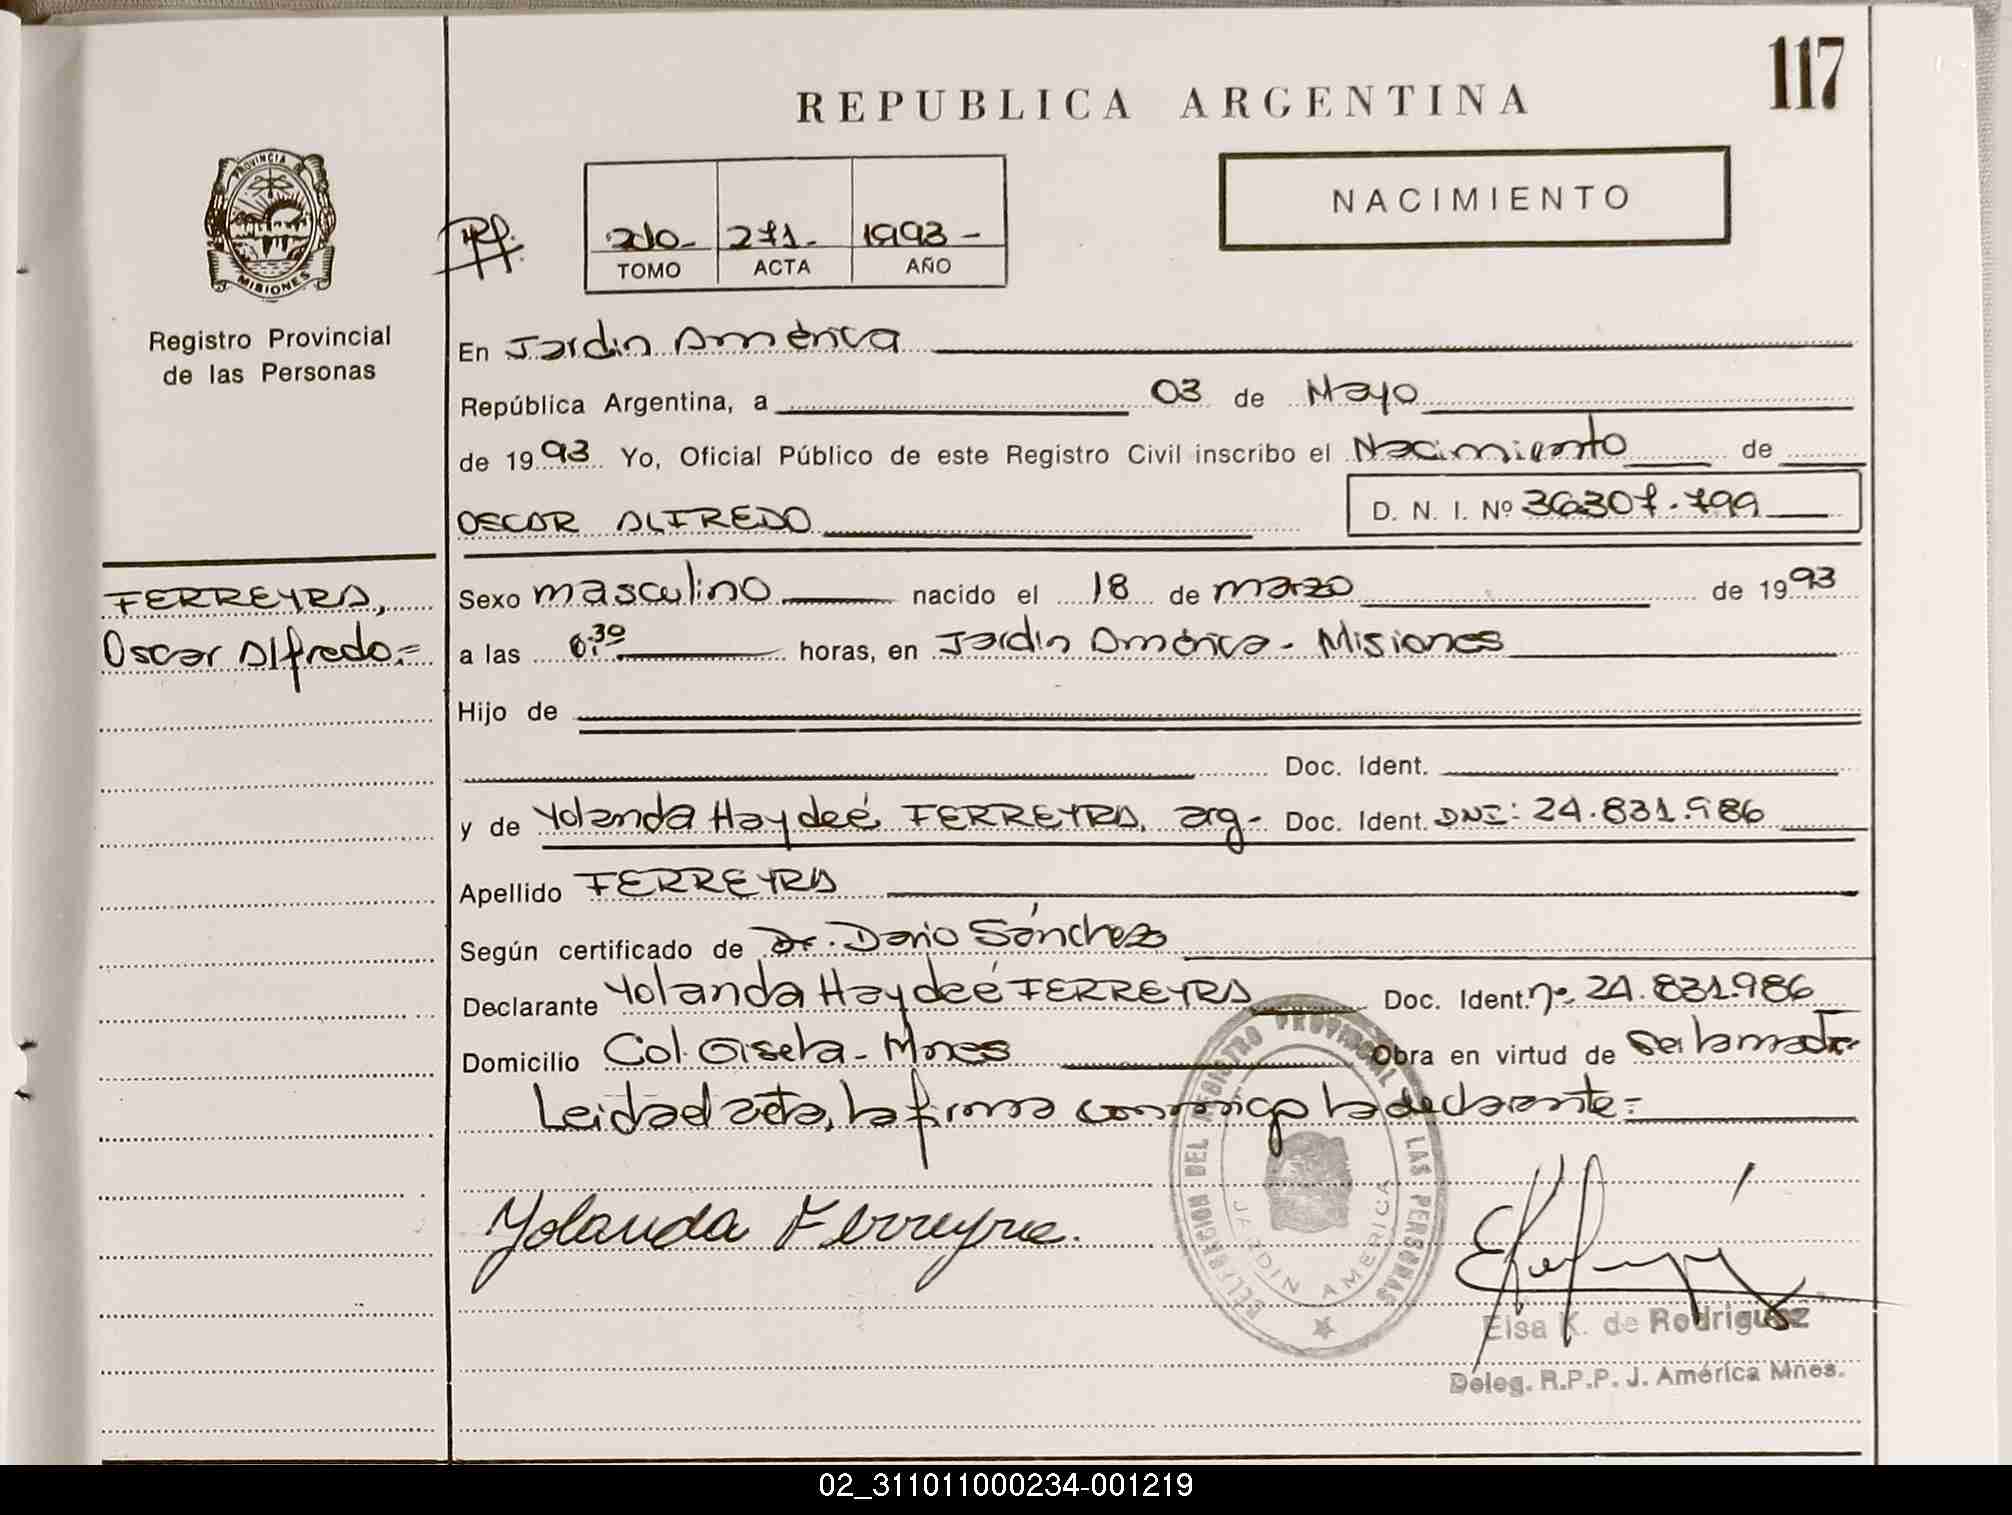 117
REPUBLICA ARGENTINA
PROVINCIA DE
MISIONES
NACIMIENTO
2do- 271- 1993-
TOMO ACTA AÑO
Registro Provincial
de las Personas
En Jardin América
República Argentina, a 03 de Mayo
de 1993 Yo, Oficial Público de este Registro Civil inscribo el Nacimiento de
OSCAR ALFREDO D. N. I. Nº 36307.799
FERREYRA,
Oscar Alfredo.=
Sexo masculino nacido el 18 de marzo de 1993
a las 6:30 horas, en Jardin América - Misiones
Hijo de
Doc. Ident.
y de Yolanda Haydeé FERREYRA, arg- Doc. Ident. DNI: 24.831.986
Apellido FERREYRA
Según certificado de Dr. Dario Sánchez
Declarante Yolanda Haydeé FERREYRA Doc. Ident. nº. 24.831.986
Domicilio Col. Gisela - Mnes Obra en virtud de ser la madre
Leida el acta, la firma conmigo la declarante=
Yolanda Ferreyra.
DELEGACION DEL REGISTRO PROVINCIAL DE LAS PERSONAS
JARDIN AMERICA
Elsa K. de Rodriguez
Deleg. R.P.P. J. América Mnes.
02_311011000234-001219